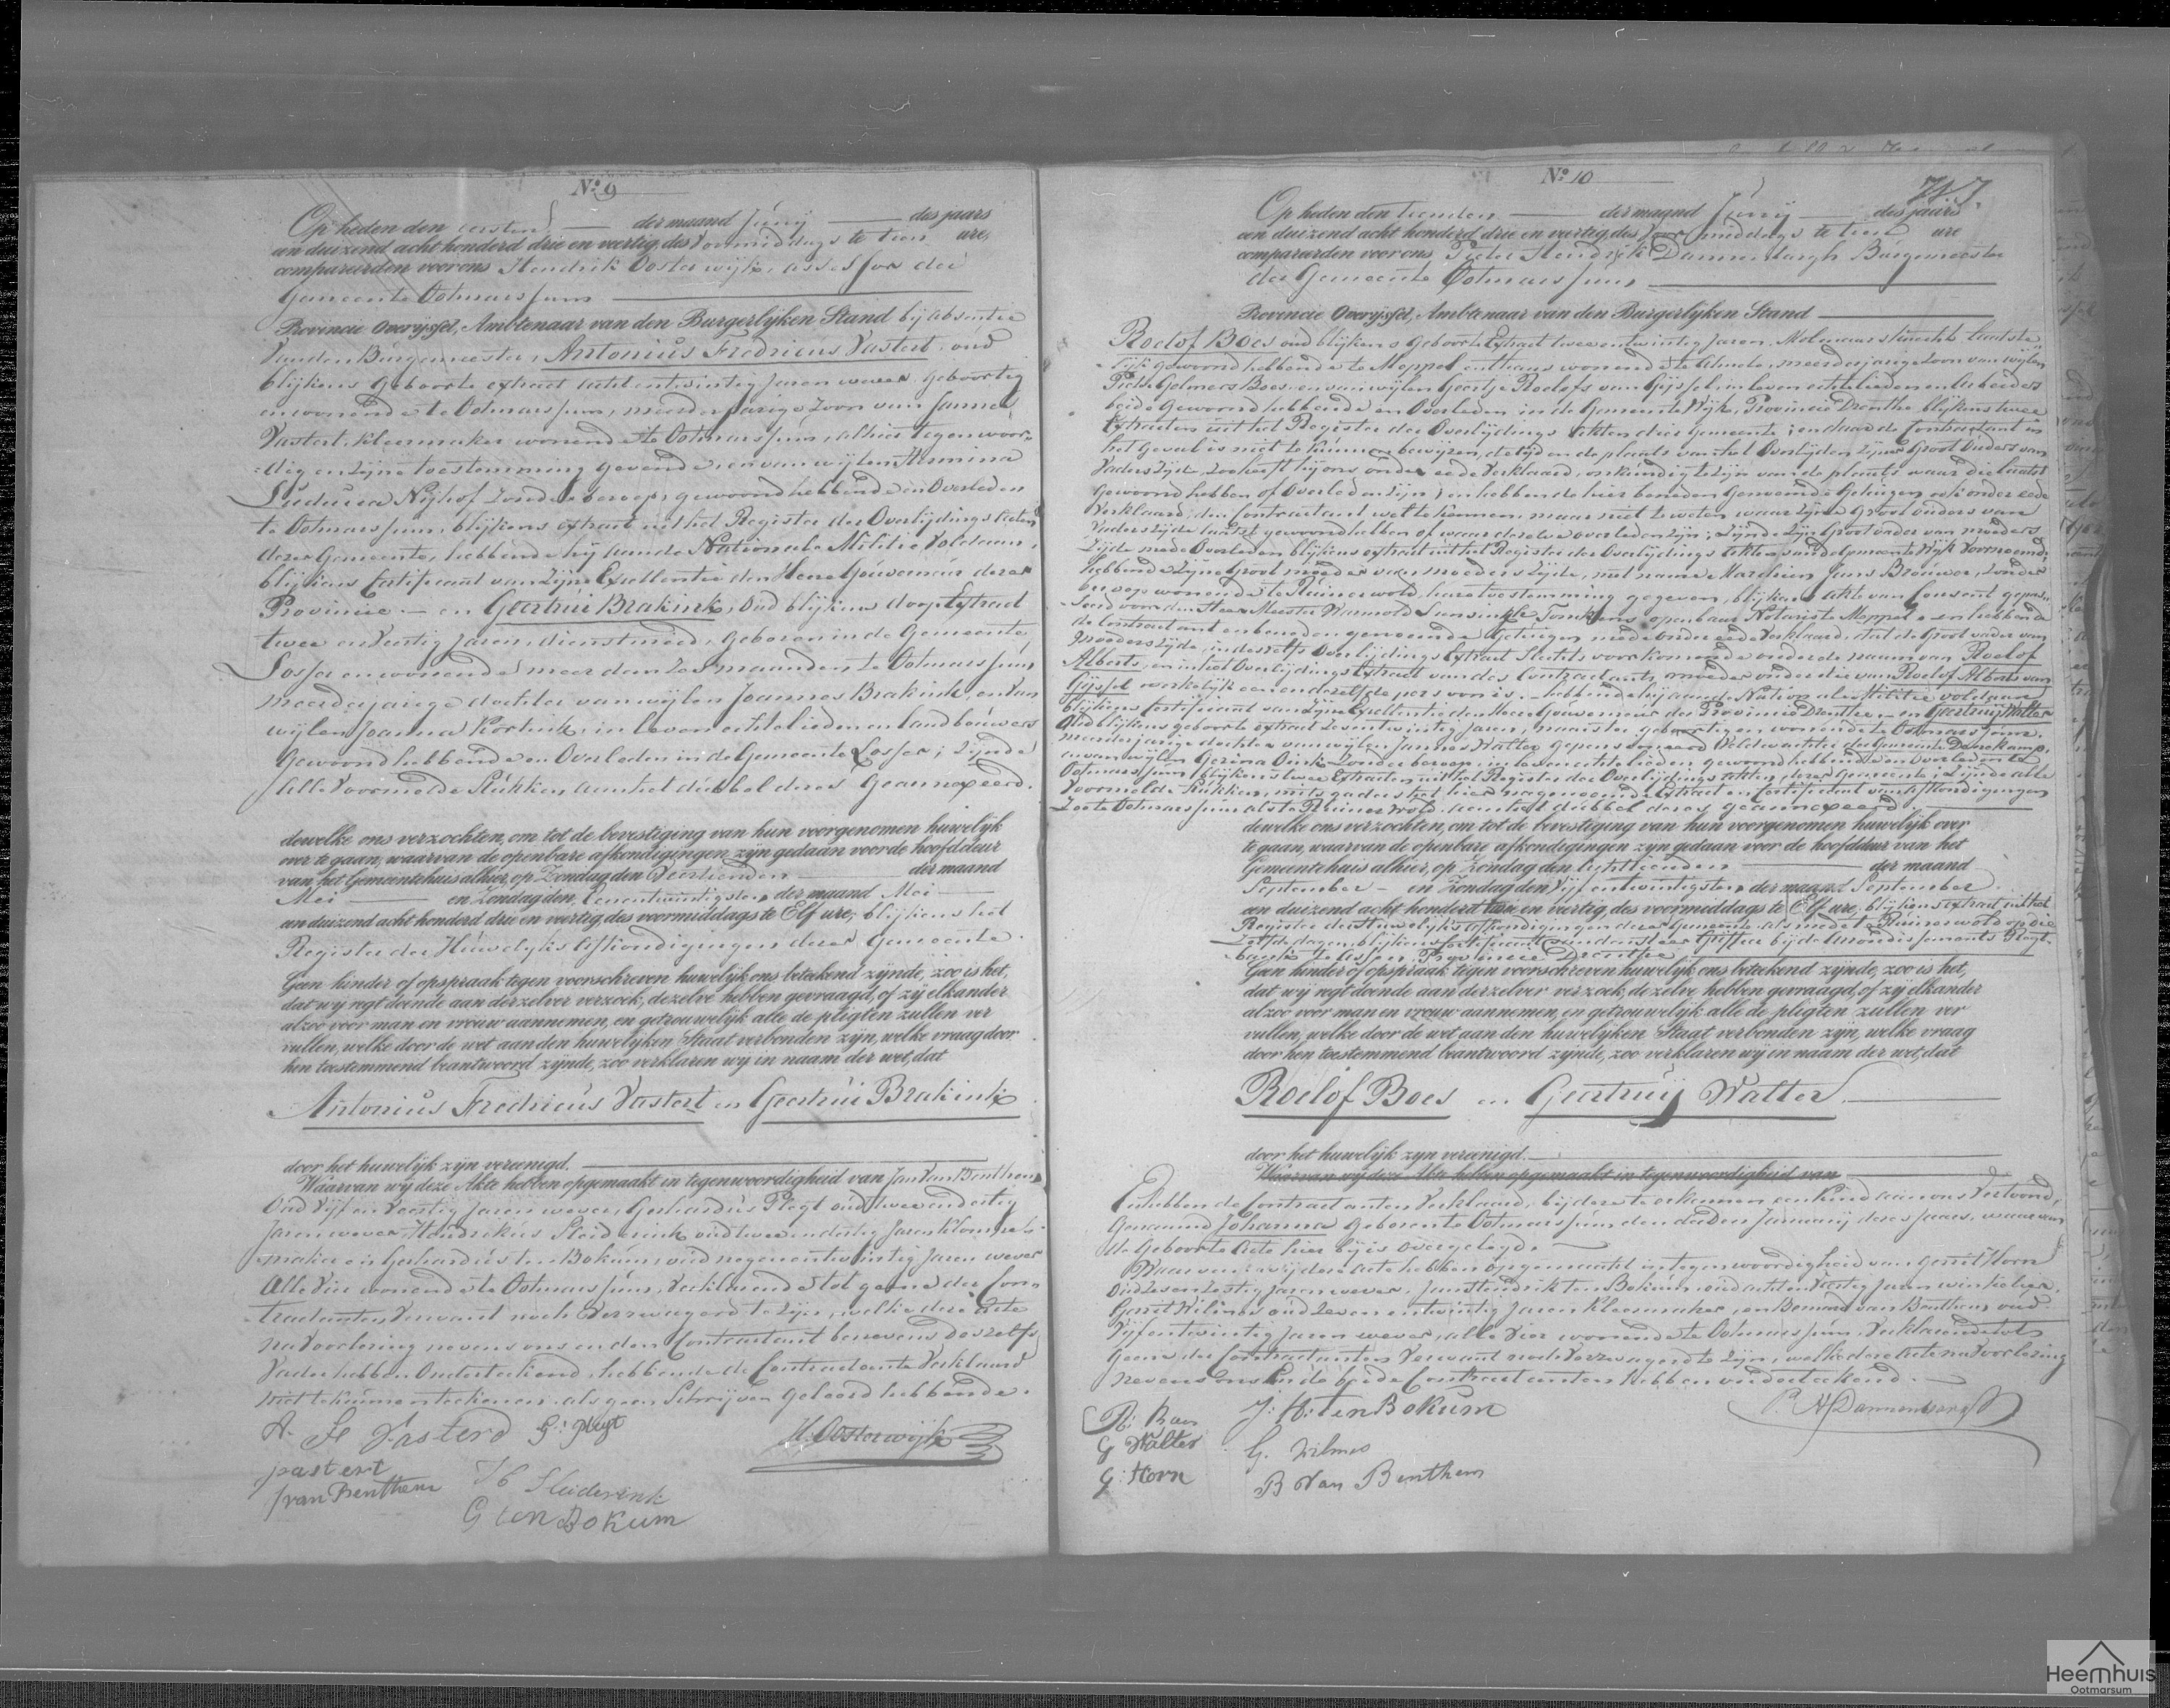 No. 9
Op heden den eersten der maand Junij des jaars
een duizend acht honderd drie en veertig, des voormiddags te tien ure,
compareerden voor ons Hendrik Oosterwijk, assessor der
Gemeente Ootmarssum
Provincie Overijssel, Ambtenaar van den Burgerlijken Stand bij absentie
van den Burgemeester, Antonius Fredricus Vastert, oud
blijkens geboorte extract acht en twintig jaren wever geboortig
en wonende te Ootmarssum, meerderjarige zoon van Jannes
Vastert, kleermaker wonende te Ootmarssum, alhier tegenwoor-
dig en zijne toestemming gevende, en van wijlen Hermina
Ludwina Nijhof zonder beroep, gewoond hebbende en overleden
te Ootmarssum, blijkens extract uit het Register der Overlijdings Acten
dezer Gemeente, hebbende hij aan de Nationale Militie voldaan,
blijkens Certificaat van Zijne Excellentie den Heer Gouverneur dezer
Provincie. — en Geertrui Brakink, oud blijkens doop Extract
twee en veertig jaren, dienstmeid, geboren in de Gemeente
Losser en wonende meer dan zes maanden te Ootmarssum,
meerderjarige dochter van wijlen Joannes Brakink en van
wijlen Joanna Kortink, in leven echtelieden en landbouwers
gewoond hebbende en overleden in de Gemeente Losser; zijnde
alle voormelde stukken aan het dubbel dezes geannexeerd.
dewelke ons verzochten, om tot de bevestiging van hun voorgenomen huwelijk
over te gaan, waarvan de openbare afkondigingen zijn gedaan voor de hoofddeur
van het Gemeentehuis alhier, op Zondag den Veertienden der maand
Mei en Zondag den Een en twintigsten der maand Mei
een duizend acht honderd drie en veertig, des voormiddags te Elf ure, blijkens het
Register der Huwelijks Afkondigingen dezer Gemeente.
Geen hinder of opspraak tegen voorschreven huwelijk ons betekend zijnde, zoo is het,
dat wij regt doende aan derzelver verzoek, dezelve hebben gevraagd, of zij elkander
alzoo voor man en vrouw aannemen, en getrouwelijk alle de pligten zullen ver
vullen, welke door de wet aan den huwelijken Staat verbonden zijn, welke vraag door
hen toestemmend beantwoord zijnde, zoo verklaren wij in naam der wet, dat
Antonius Fredricus Vastert en Geertrui Brakink
door het huwelijk zijn vereenigd.
Waarvan wij deze Akte hebben opgemaakt in tegenwoordigheid van Jan van Benthem
oud vijf en veertig jaren wever, Gerhardus Plegt oud twee en dertig
jaren wever Hendrikus Sleiderink oud twee en dertig jaren klompe-
maker en Gerhardus ten Bokum, oud negen en twintig jaren wever
alle vier wonende te Ootmarssum, verklarende tot geene der Con-
tractanten verwant noch verzwagerd te zijn, welke deze Acte
na voorlezing nevens ons en den Contractant benevens deszelfs
Vader hebben onderteekend, hebbende de Contractante verklaard
niet te kunnen teekenen als geen schrijven geleerd hebbende.
A. F. Vasterd G: Plegt
H. Oosterwijk
J vastert
J van Benthem H Sleiderink
G ten Bokum
No. 10
Op heden den tienden der maand Junij des jaars
een duizend acht honderd drie en veertig, des voormiddags te tien ure
compareerden voor ons Pieter Hendrik Dannenbargh Burgemeester
der Gemeente Ootmarssum,
Provincie Overijssel, Ambtenaar van den Burgerlijken Stand
Roelof Boes oud blijkens Geboorte Extract twee en twintig jaren, Molenaarsknecht laatste-
lijk gewoond hebbende te Meppel en thans wonende te Almelo, meerderjarige zoon van wijlen
Pieter Gelmers Boes, en van wijlen Geertje Roelofs van Gijssel, in leven echtelieden en arbeiders
beide gewoond hebbende en overleden in de Gemeente Wijk, Provincie Drenthe blijkens twee
Extracten uit het Register der Overlijdings Akten dier Gemeente; en daar de Contractant in
het geval is niet te kunnen bewijzen, de tijd en de plaats van het Overlijden zijner Groot Ouders van
Vaders zijde, zoo heeft hij ons onder eede verklaard, onkundig te zijn van de plaats waar die laatst
gewoond hebben of overleden zijn; en hebbende hier beneden genoemde Getuigen ook onder eede
verklaard, den Contractant wel te kennen, maar niet te weten waar zijne Groot ouders van
Vaders zijde laatst gewoond hebben of waar dezelve overleden zijn; zijnde zijn Grootvader van moeders
zijde mede Overleden blijkens extract uit het Register der Overlijdings Akten van de Gemeente Wijk voornoemd;
hebbende zijne Groot moeder van moeders zijde, met name Marchien Jans Brouwer, zonder
beroep wonende te Ruinerwold, hare toestemming gegeven, blijkens akte van consent gepas-
seerd voor den Heer Meester Warmold Lunsingh Tonckens openbaar Notaris te Meppel, en hebbende
de Contractant en beneden genoemde Getuigen mede onder eede verklaard, dat de Groot vader van
moeders zijde, in deszelfs Overlijdings Extract slechts voorkomende onder de naam van Roelof
Alberts, en in het Overlijdings Extract van des Contractants moeder onder die van Roelof Alberts van
Gijssel werkelijk een en dezelfde persoon is. — hebbende hij aan de Nationale Militie voldaan
blijkens Certificaat van Zijne Excellentie den Heere Gouverneur der Provincie Drenthe, — en Geertruij Walter
oud blijkens geboorte extract zes en twintig jaren, naaister geboortig en wonende te Ootmarssum,
meerderjarige dochter van wijlen Jannes Walter gepensioneerd Veldwachter der Gemeente Denekamp,
en van wijlen Gerina Oink zonder beroep in leven echtelieden gewoond hebbende en overleden te
Ootmarssum, blijkens twee Extracten uit het Register der Overlijdings akten dezer Gemeente; zijnde alle
voormelde stukken, mitsgaders het hier nagenoemde Extract en Certificaat van afkondigingen
zoo te Ootmarssum als te Ruinerwold, aan het dubbel dezes geannexeerd.
dewelke ons verzochten, om tot de bevestiging van hun voorgenomen huwelijk over
te gaan, waarvan de openbare afkondigingen zijn gedaan voor de hoofddeur van het
Gemeentehuis alhier, op Zondag den achttienden der maand
September en Zondag den Vijf en twintigsten der maand September
een duizend acht honderd twee en veertig, des voormiddags te Elf ure, blijkens extract uit het
Register der Huwelijks afkondigingen dezer Gemeente, als mede te Ruinerwold op die
zelfde dagen, blijkens Certificaat van den Heer Griffier bij de Arrondissements Regt-
bank te Assen Provincie Drenthe
Geen hinder of opspraak tegen voorschreven huwelijk ons beteekend zijnde, zoo is het,
dat wij regt doende aan derzelver verzoek, dezelve hebben gevraagd, of zij elkander
alzoo voor man en vrouw aannemen, en getrouwelijk alle de pligten zullen ver
vullen, welke door de wet aan den huwelijken Staat verbonden zijn, welke vraag
door hen toestemmend beantwoord zijnde, zoo verklaren wij in naam der wet, dat
Roelof Boes en Geertruij Walter.
door het huwelijk zijn vereenigd.
Waarvan wij deze Akte hebben opgemaakt in tegenwoordigheid van
En hebben de Contractanten verklaard, bij deze te erkennen een kind aan ons vertoond,
genaamd Johanna geboren te Ootmarssum den derden Januarij dezes jaars, waarvan
de Geboorte Acte hier bij is overgelegd.
Waarvan wij deze acte hebben opgemaakt in tegenwoordigheid van Gerrit Horn
oud zes en zestig jaren wever, Jan Hendrik ten Bokum oud acht en veertig jaren winkelier,
Gerrit Wilmes oud zeven en twintig jaren kleermaker, en Bernard van Benthem oud
vijf en twintig jaren wever, alle vier wonende te Ootmarssum verklarende tot
geene der Contractanten verwant noch verzwagerd te zijn, welke deze acte na voorlezing
nevens ons en de beide Contractanten hebben onderteekend.
R: Boes J: H: Ten Bokum P. H. Dannenbargh
G Walter G. Wilmes
G: Horn B Van Benthem
Heemhuis
Ootmarsum